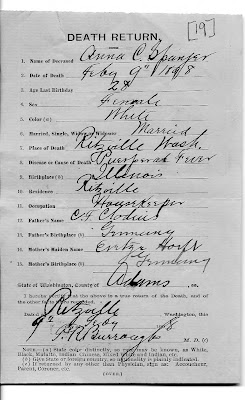 [19]
DEATH RETURN.
1. Name of Deceased Anna C. Spanjer
2. Date of Death Feby 9th 1898
3. Age Last Birthday 28
4. Sex Female
5. Color (a) White
6. Married, Single, Widow or Widower Married
7. Place of Death Ritzville Wash.
8. Disease or Cause of Death Puerperal Fever
9. Birthplace (b) Illinois
10. Residence Ritzville
11. Occupation Housekeeper
12. Father's Name C. F. Clodius
13. Father's Birthplace (b) Germany
14. Mother's Maiden Name
15. Mother's Birthplace (b) Germany
State of Washington, County of Adams, ss.
I hereby certify that the above is a true return of the Death, and of the other facts therein recorded.
Dated Ritzville Washington, this
9th of Feby 1898
F. R. Burroughs M. D. (c)
NOTE.—(a) State color distinctly, so race may be known, as White, Black, Mulatto, Indian, Chinese, mixed White and Indian, etc.
(b) Give State or foreign country, so nationality is plainly indicated.
(c) If returned by any other than Physician, sign as: Accoucheur, Parent, Coroner, etc.
(OVER.)